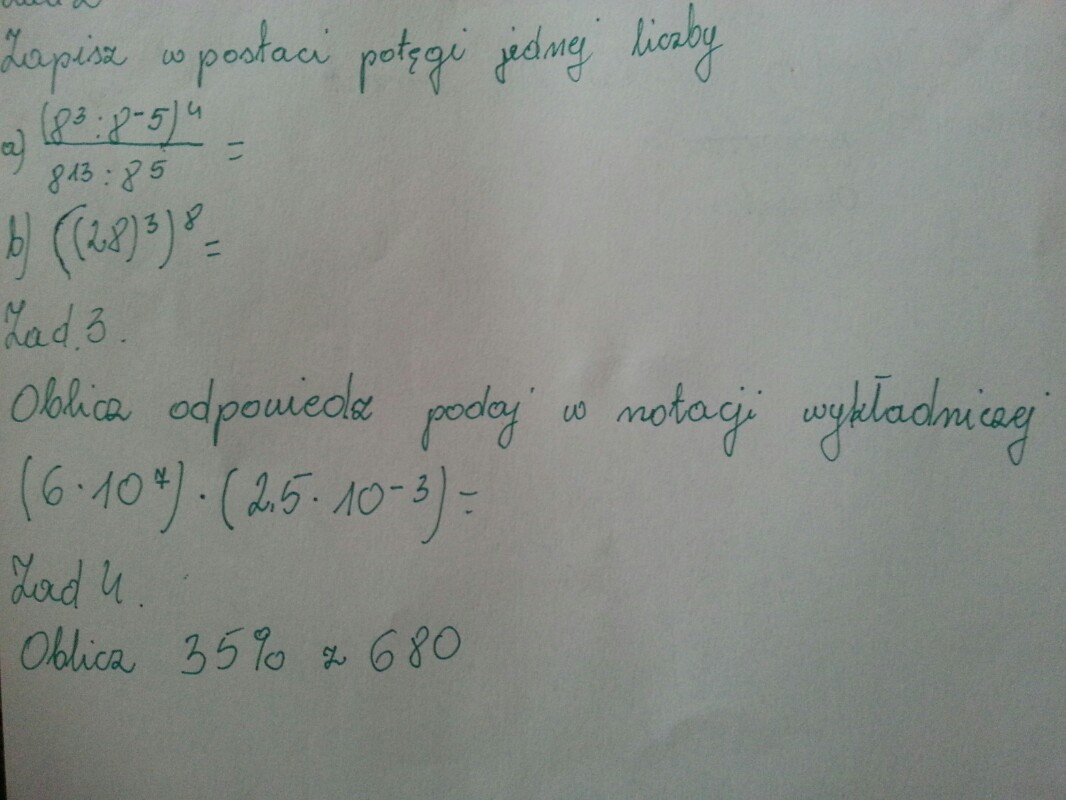 Zapisz w postaci potęgi jednej liczby
a) (8³:8⁻⁵)⁴
8¹³:8⁵ =
b) ((28)³)⁸ =
Zad. 3.
Oblicz odpowiedz podaj w notacji wykładniczej
(6·10⁷)·(2,5·10⁻³)=
Zad 4.
Oblicz 35% z 680